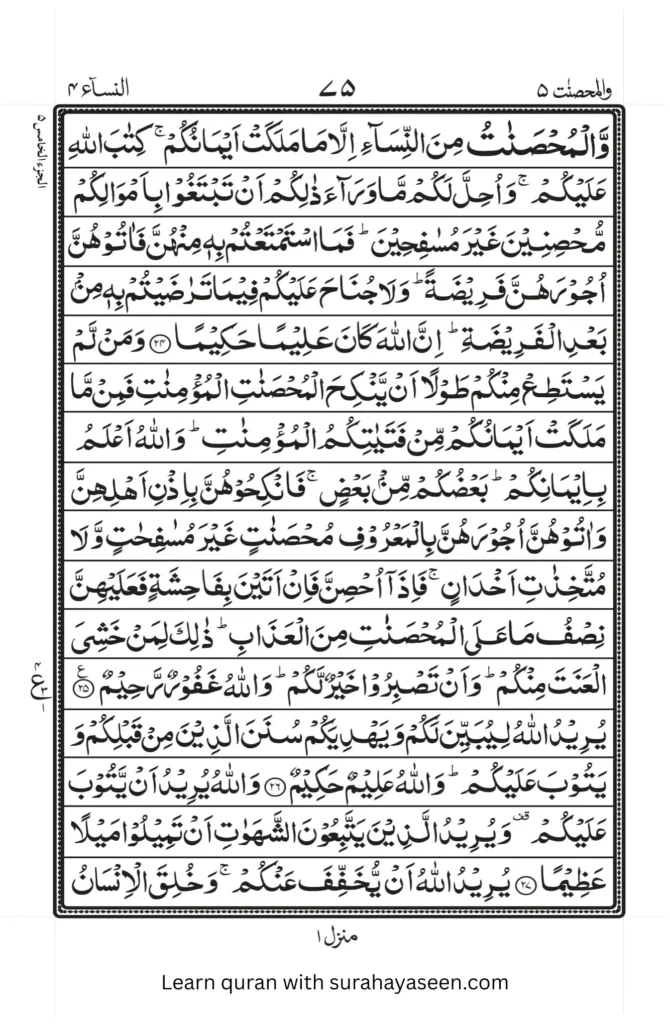 والمحصنٰت ۵ ۷۵ النسآء ۴
الجزء الخامس ۵
وَّالْمُحْصَنٰتُ مِنَ النِّسَآءِ اِلَّا مَا مَلَكَتْ اَيْمَانُكُمْ ۚ كِتٰبَ اللّٰهِ
عَلَيْكُمْ ۚ وَاُحِلَّ لَكُمْ مَّا وَرَآءَ ذٰلِكُمْ اَنْ تَبْتَغُوْا بِاَمْوَالِكُمْ
مُّحْصِنِيْنَ غَيْرَ مُسٰفِحِيْنَ ؕ فَمَا اسْتَمْتَعْتُمْ بِهٖ مِنْهُنَّ فَاٰتُوْهُنَّ
اُجُوْرَهُنَّ فَرِيْضَةً ؕ وَلَا جُنَاحَ عَلَيْكُمْ فِيْمَا تَرٰضَيْتُمْ بِهٖ مِنْۢ
بَعْدِ الْفَرِيْضَةِ ؕ اِنَّ اللّٰهَ كَانَ عَلِيْمًا حَكِيْمًا ۝۲۴ وَمَنْ لَّمْ
يَسْتَطِعْ مِنْكُمْ طَوْلًا اَنْ يَّنْكِحَ الْمُحْصَنٰتِ الْمُؤْمِنٰتِ فَمِنْ مَّا
مَلَكَتْ اَيْمَانُكُمْ مِّنْ فَتَيٰتِكُمُ الْمُؤْمِنٰتِ ؕ وَاللّٰهُ اَعْلَمُ
بِاِيْمَانِكُمْ ؕ بَعْضُكُمْ مِّنْۢ بَعْضٍ ۚ فَانْكِحُوْهُنَّ بِاِذْنِ اَهْلِهِنَّ
وَاٰتُوْهُنَّ اُجُوْرَهُنَّ بِالْمَعْرُوْفِ مُحْصَنٰتٍ غَيْرَ مُسٰفِحٰتٍ وَّلَا
مُتَّخِذٰتِ اَخْدَانٍ ۚ فَاِذَاۤ اُحْصِنَّ فَاِنْ اَتَيْنَ بِفَاحِشَةٍ فَعَلَيْهِنَّ
نِصْفُ مَا عَلَى الْمُحْصَنٰتِ مِنَ الْعَذَابِ ؕ ذٰلِكَ لِمَنْ خَشِىَ
الْعَنَتَ مِنْكُمْ ؕ وَاَنْ تَصْبِرُوْا خَيْرٌ لَّكُمْ ؕ وَاللّٰهُ غَفُوْرٌ رَّحِيْمٌ ۝۲۵ ع
يُرِيْدُ اللّٰهُ لِيُبَيِّنَ لَكُمْ وَيَهْدِيَكُمْ سُنَنَ الَّذِيْنَ مِنْ قَبْلِكُمْ وَ
يَتُوْبَ عَلَيْكُمْ ؕ وَاللّٰهُ عَلِيْمٌ حَكِيْمٌ ۝۲۶ وَاللّٰهُ يُرِيْدُ اَنْ يَّتُوْبَ
عَلَيْكُمْ ۫ وَيُرِيْدُ الَّذِيْنَ يَتَّبِعُوْنَ الشَّهَوٰتِ اَنْ تَمِيْلُوْا مَيْلًا
عَظِيْمًا ۝۲۷ يُرِيْدُ اللّٰهُ اَنْ يُّخَفِّفَ عَنْكُمْ ۚ وَخُلِقَ الْاِنْسَانُ
منزل ۱
Learn quran with surahayaseen.com